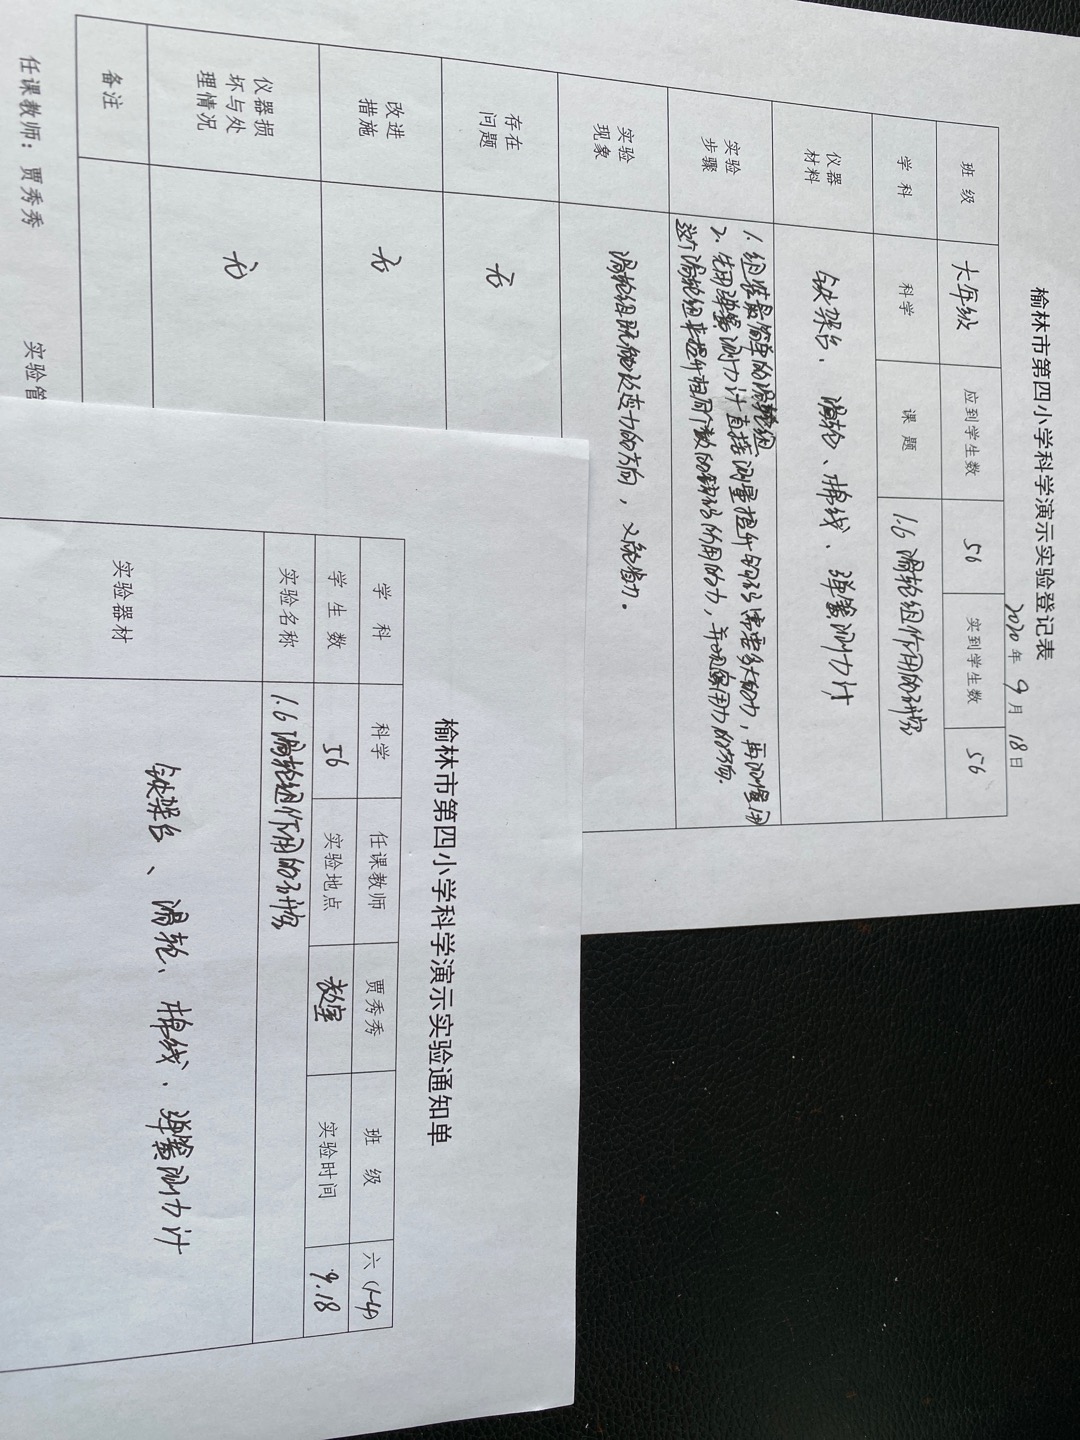 榆林市第四小学科学演示实验登记表
2020年 9月 18日
班 级 六年级 应到学生数 56 实到学生数 56
学 科 科学 课 题 1.6 滑轮组作用的研究
仪器材料 铁架台、滑轮、棉线、弹簧测力计
实验步骤 1. 组装最简单的滑轮组
2. 先用弹簧测力计直接测量提升钩码需要多大的力，再测量用
这个滑轮组来提升相同个数的钩码所用的力，并观察用力的方向.
实验现象 滑轮组既能改变力的方向，又能省力。
存在问题 无
改进措施 无
仪器损坏与处理情况 无
备注
任课教师：贾秀秀 实验管
榆林市第四小学科学演示实验通知单
学 科 科学 任课教师 贾秀秀 班 级 六 (1-4)
学生数 56 实验地点 教室 实验时间 9.18
实验名称 1.6 滑轮组作用的研究
实验器材 铁架台、滑轮、棉线、弹簧测力计